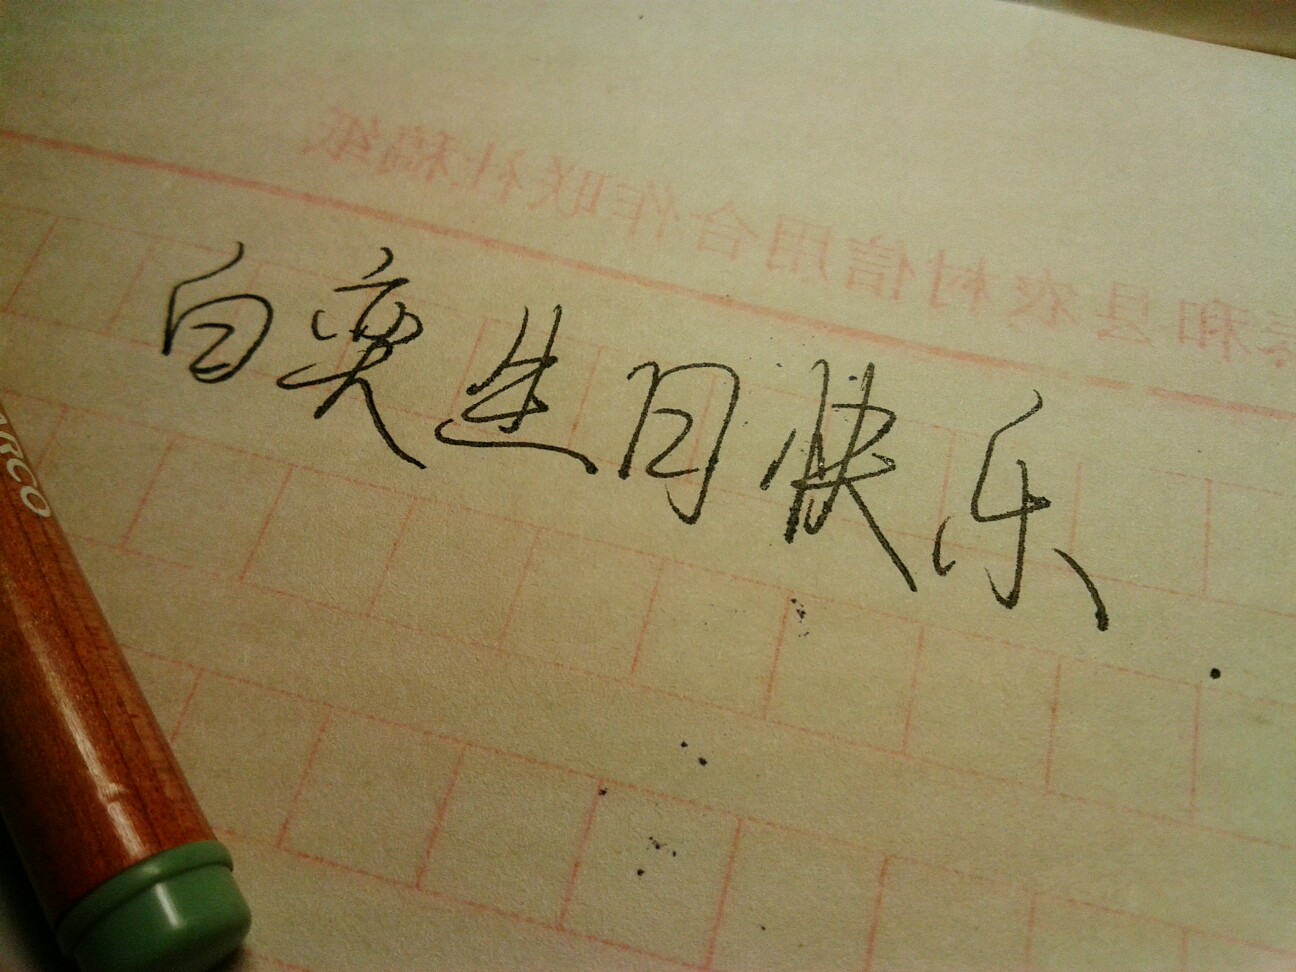 泰和县农村信用合作联社稿纸
白奕生日快乐
ARCO